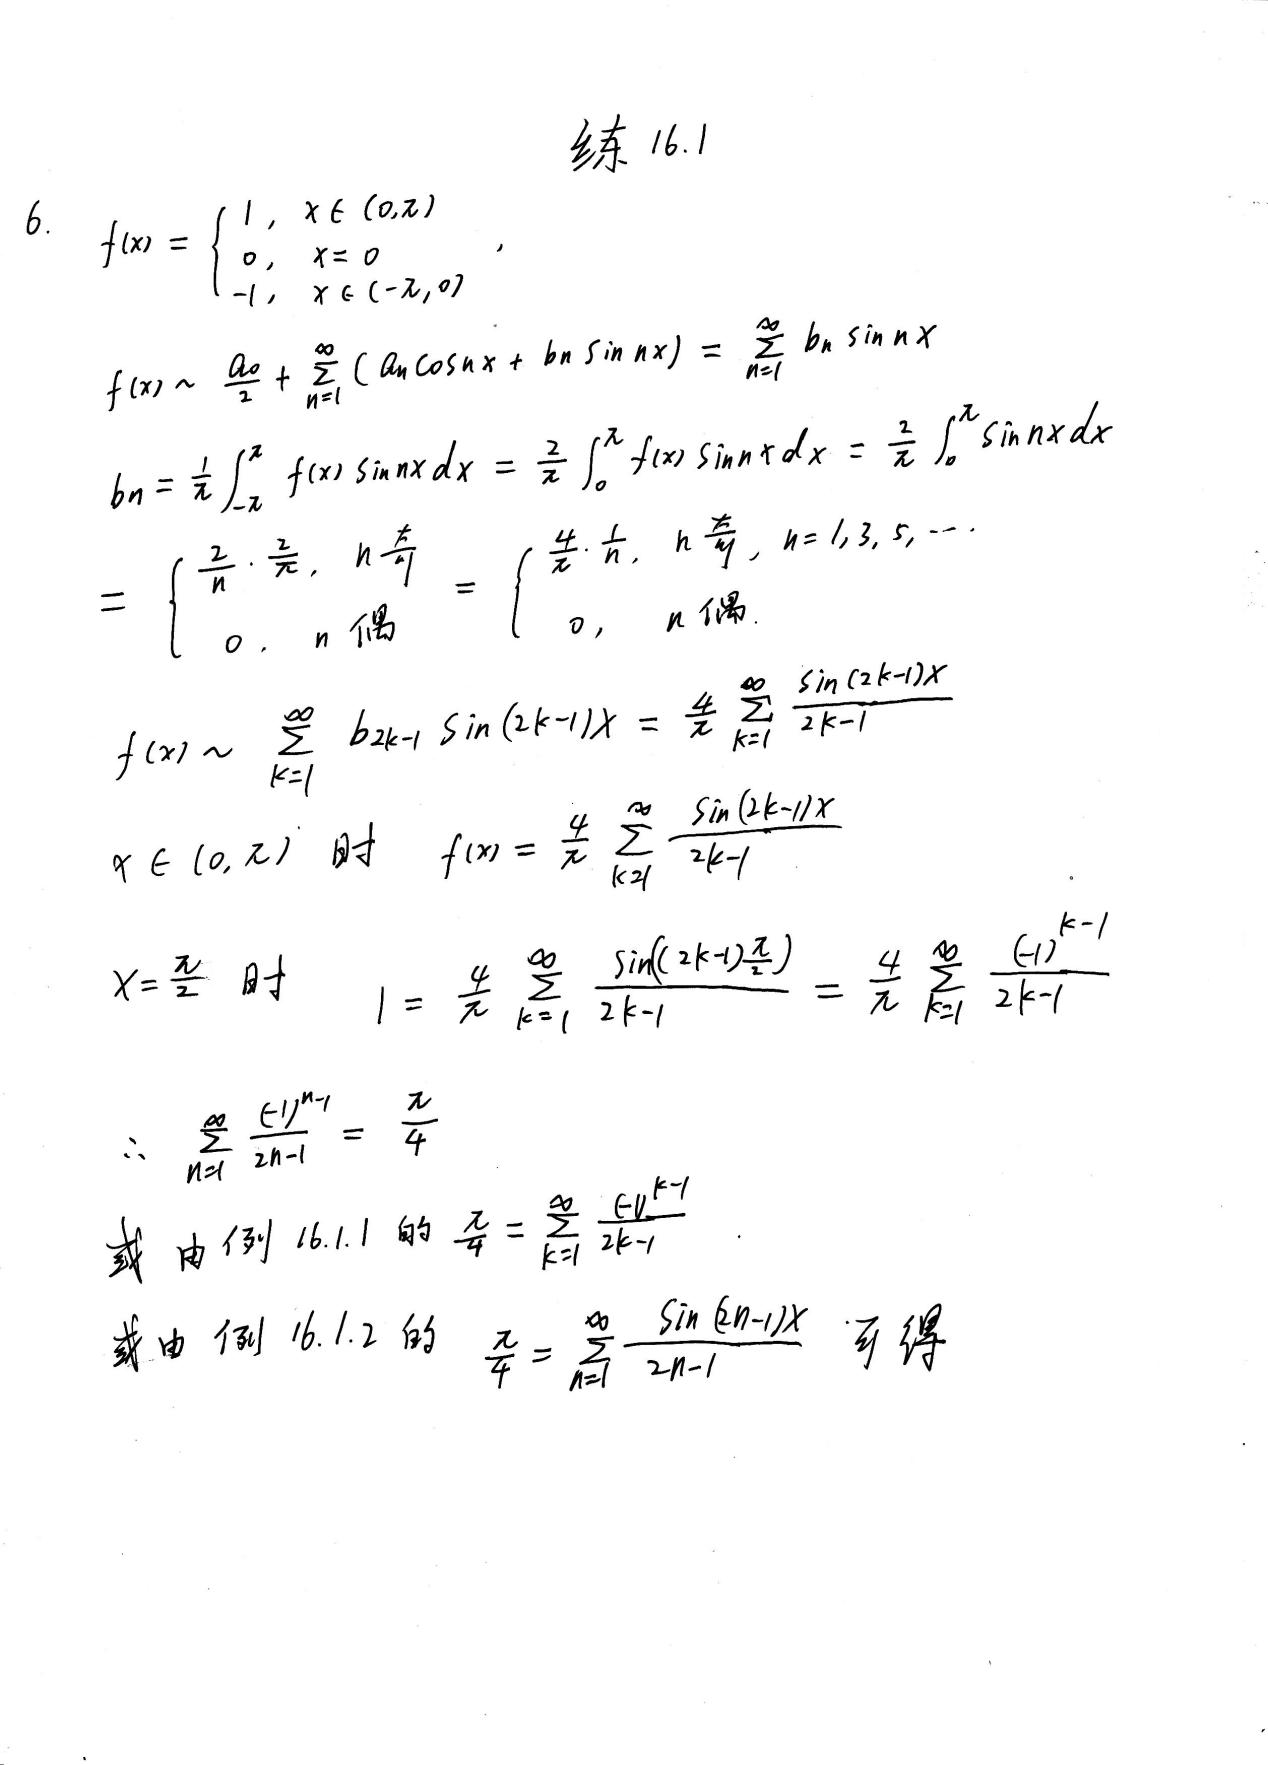 练 16.1
6. f(x) = { 1, x ∈ (0,π)
0, x = 0 ,
-1, x ∈ (-π,0)
f(x) ~ a₀/2 + ∑_{n=1}^{∞} (aₙ cos nx + bₙ sin nx) = ∑_{n=1}^{∞} bₙ sin nx
bₙ = 1/π ∫_{-π}^{π} f(x) sin nx dx = 2/π ∫_0^π f(x) sin nx dx = 2/π ∫_0^π sin nx dx
= { 2/n · 2/π, n 奇 = { 4/π · 1/n, n 奇, n = 1,3,5,…
0, n 偶 0, n 偶.
f(x) ~ ∑_{k=1}^{∞} b_{2k-1} sin(2k-1)x = 4/π ∑_{k=1}^{∞} sin(2k-1)x / (2k-1)
x ∈ (0,π) 时 f(x) = 4/π ∑_{k=1}^{∞} sin(2k-1)x / (2k-1)
x = π/2 时 1 = 4/π ∑_{k=1}^{∞} sin((2k-1)π/2) / (2k-1) = 4/π ∑_{k=1}^{∞} (-1)^{k-1} / (2k-1)
∴ ∑_{n=1}^{∞} (-1)^{n-1} / (2n-1) = π/4
或由例 16.1.1 的 π/4 = ∑_{k=1}^{∞} (-1)^{k-1} / (2k-1) .
或由例 16.1.2 的 π/4 = ∑_{n=1}^{∞} sin(2n-1)x / (2n-1) 可得